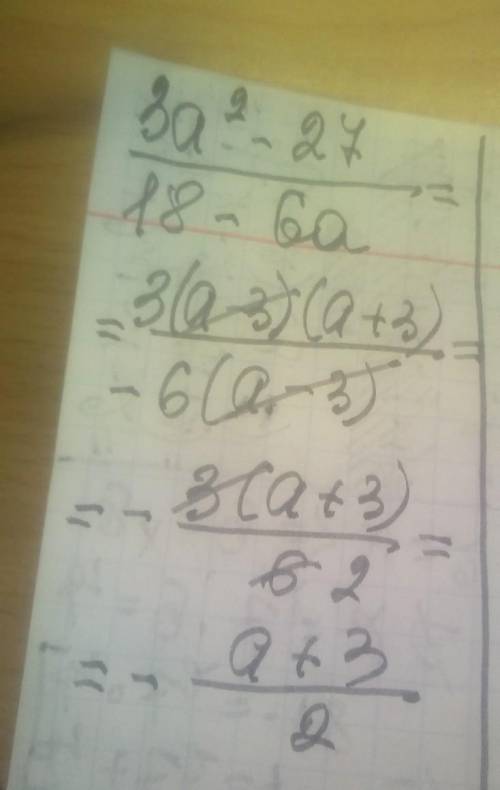 3a² - 27
18 - 6a =
= 3(a-3)(a+3)
- 6(a-3) =
= - 3(a+3)
6 2 =
= - a+3
2